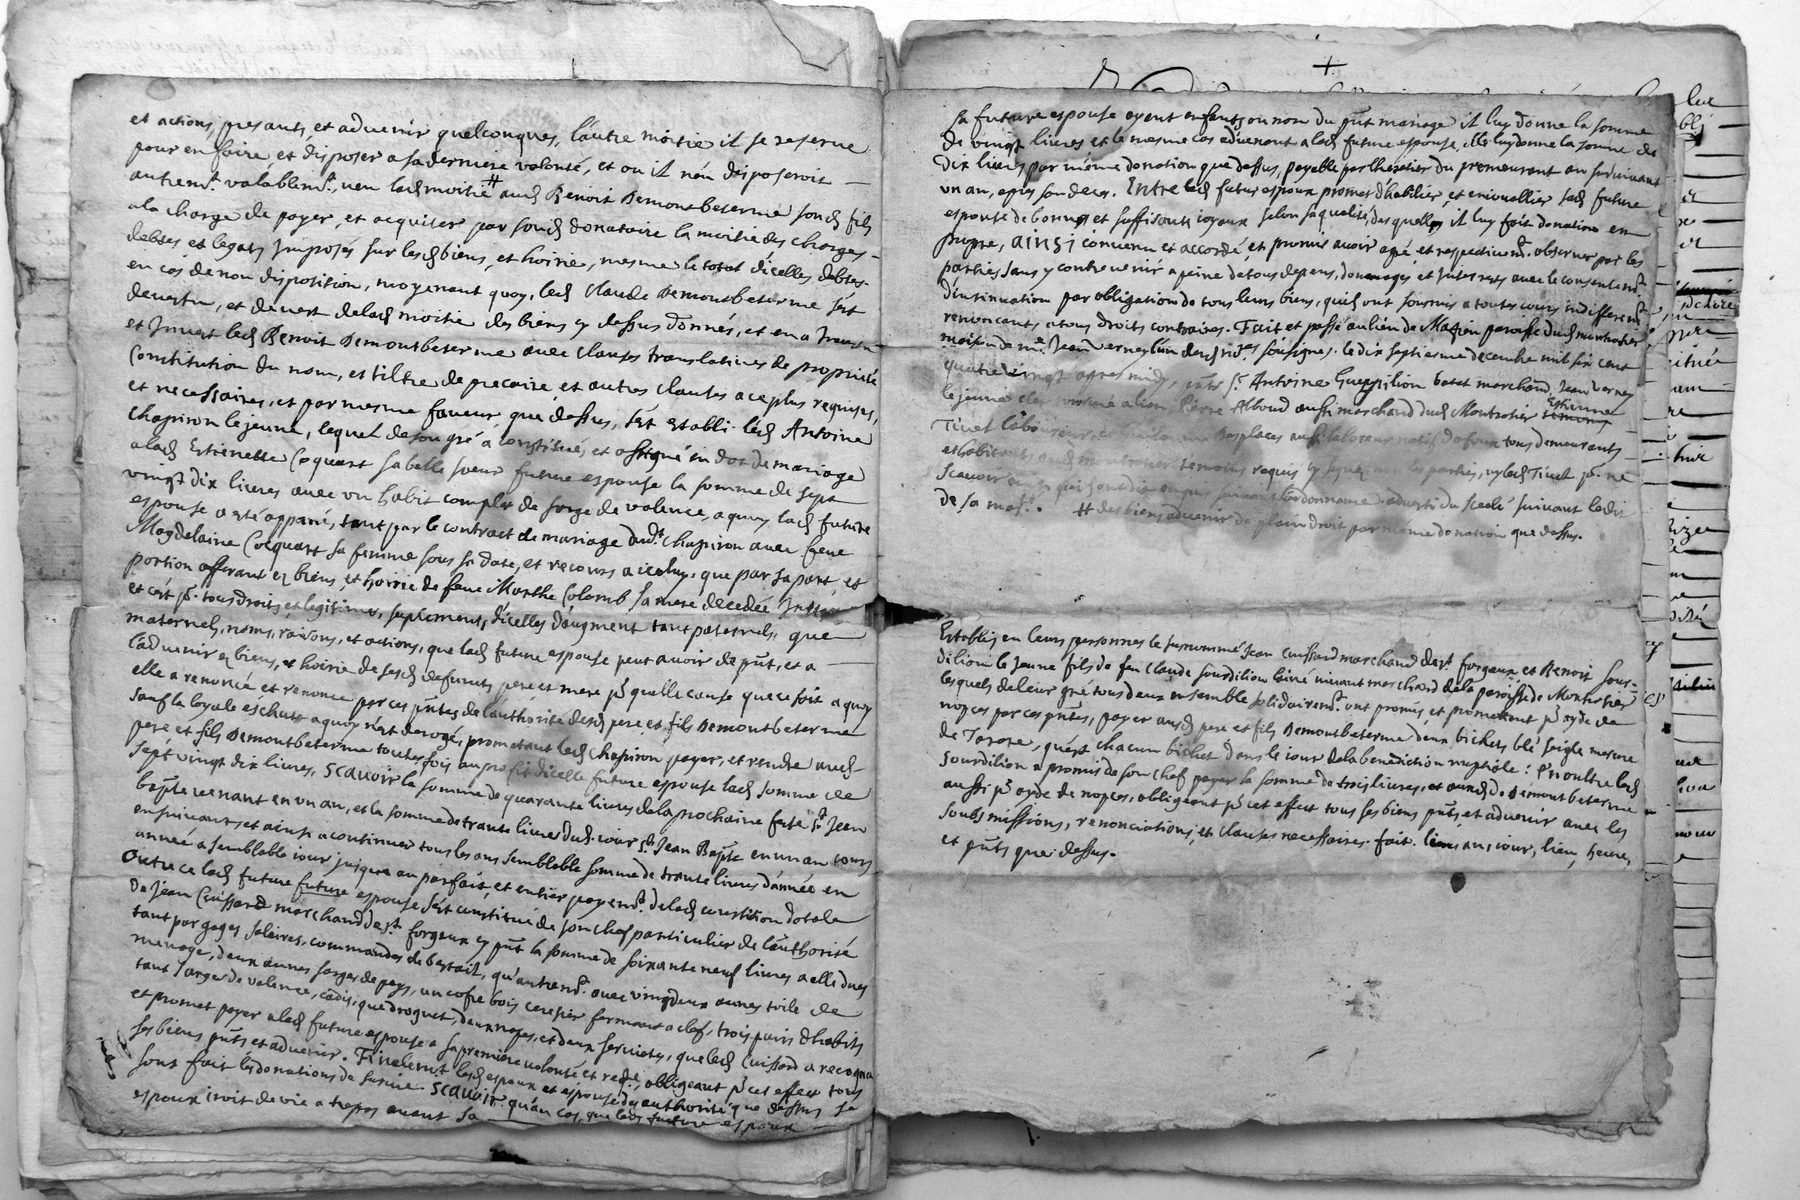 et actions, presants et advenir quelconques, l'autre moitié il se reserve
pour en faire et disposer a sa derniere volonté, et ou il n'en disposeroit
autremt. valablemt. ven lad moitié # aud Benoit Demontbeterme sond fils
a la charge de payer, et acquiter par sond donataire la moitié des charges
debtes et legats Imposés sur lesd biens, et hoirie, mesme le total d'icelles debtes
en cas de non disposition, moyenant quoy, led Claude Demontbeterme s'est
devestu, et devest de lad moitié des biens cy dessus donnés, et en a
et Invest led Benoit Demontbeterme avec clauses translatives de propriété
Constitution du nom, et tiltre de precaire et autres clauses a ce plus requises,
et necessaires, et par mesme faveur que dessus, s'est establi led Antoine
Chapiron le jeune, lequel de son gré a constitué, et assigné en dot de mariage
a lad Estienette Coquart sa belle soeur future espouse la somme de sept
vingt dix livres avec un habit complet de sarge de valence, a quoy lad future
espouse a esté appané, tant par le contract de mariage dudt. Chapiron avec feue
Magdelaine Cocquart sa femme sous sa date, et recours a iceluy, que par sa part, et
portion afferant ez biens, et hoirie de feue Marthe Colomb sa mere decedée
et c'est pr. tous droits et legitimes, suplement, d'icelles d'augment tant paternels, que
maternels, noms, raisons, et actions, que lad future espouse peut avoir de pnt, et a
l'advenir ez biens, et hoirie de sesd defunts pere et mere pr quelle cause que ce soit a quoy
elle a renoncé et renonce par ces pntes de l'authorité desd pere et fils Demontbeterme
sauf la loyale eschute a quoy n'est derogé, prometant led Chapiron payer, et rendre ausd
pere et fils Demontbeterme toutesfois au profit d'icelle future espouse lad somme de
sept vingt dix livres, scavoir la somme de quarante livres de la prochaine feste St. Jean
bapte venant en un an, et la somme de trante livres dud. iour St. Jean Bapte en un an tours
ensuivants et ainsi a continuer tous les ans semblable somme de trante livres d'année en
année a semblable iour jusques au parfait, et entier payemt. de lad constition dotale
Outre ce lad future future espouse s'est constitué de son chef particulier de l'authorité
de Jean Cuissard marchand de St. forgeux cy pnt la somme de soixante neuf livres a elle dues
tant par gages salaires, commandes de bestail, qu'autremt. avec vingt deux aunes toile de
menage, deux aunes sarges de pays, un cofre bois cerisier fermant a clef, trois pairs d'habits
tant sarges de valence, cadis, que droguet, deux napes, et deux serviets, que led Cuissard a recognu
et promet payer a lad future espouse a sa premiere volonté et reqte, obligeant pr cet effect tous
ses biens pnts et advenir. Finalemt lesd espoux et espouse des authorité que dessus se
sont fait les donations de survie. SCAVOIR qu'au cas, que led future espoux
espoux iroit de vie a trepas avant sa
sa future espouse ayent enfants ou non du pnt mariage il luy donne la somme
de vingt livres et le mesme cas advenant a lad future espouse, elle luy donne la somme de
dix livres par méme donation que dessus, payable par l'heritier du premourant au survivant
un an, apres son deces. Intre led futur espoux promet d'habilier et enioallier sad future
espouse de bonnes et suffisants ioyaux selon sa qualité, des quelles il luy fait donation en
propre, AINSI convenu et accordé, et promis avoir agré et respectivemt. observer par les
parties sans y contrevenir a peine de tous depens, domages et Interests avec le consentemt.
d'insinuation par obligation de tous leurs biens, quils ont soumis a toutes cours indifferemt.
renoncants a tous droits contraires. Fait et passé au lieu de Mazieu paroisse dud montrotier
maison de me. Jean verney l'un desd nores soussignes. le dix septiesme decembre mil six cent
quatre vingt apres midy, pnts sr. Antoine Guerpilion batat marchand, Jean verney
le jeune clerc Pierre Alboud aussi marchand dud Montrotier Estienne
Tivet laboureur, et desplaces aussi laboureur natif d'afoux tous demeurants
et habitants aud montrotier temoins requis cy signez avec les parties, ny led Tivet pr ne
scavoir ecrire qui sont de ce enquis suivant l'ordonnance adverti du scealé suivant l'edit
de sa maté. # des biens advenir de plain droit par méme donation que dessus.
Establis en leurs personnes le susnommé Jean Cuissard marchand de St. forgeux et Benoit sour-
dilion le Jeune fils de feu Claude sourdilion l'ainé vivant marchand de la paroisse de Montrotier
lesquels de leur gré tous deux ensemble solidairemt. ont promis et prometent pr ayde de
nopces par ces pntes, payer ausd pere et fils Demontbeterme deux bichets blé seigle mesure
de Tarare, qu'est chacun bichet dans le iour de la benediction nuptiale: Et en oultre led
sourdilion a promis de son chef payer la somme de trois livres, et ausd de Demontbeterme
aussi pr ayde de nopces, obligeant pr cet effect tous ses biens pnts, et advenir avec les
soubsmissions, renonciations, et clauses necessaires. fait lesans, iour, lieu, heure,
et pnts que dessus.